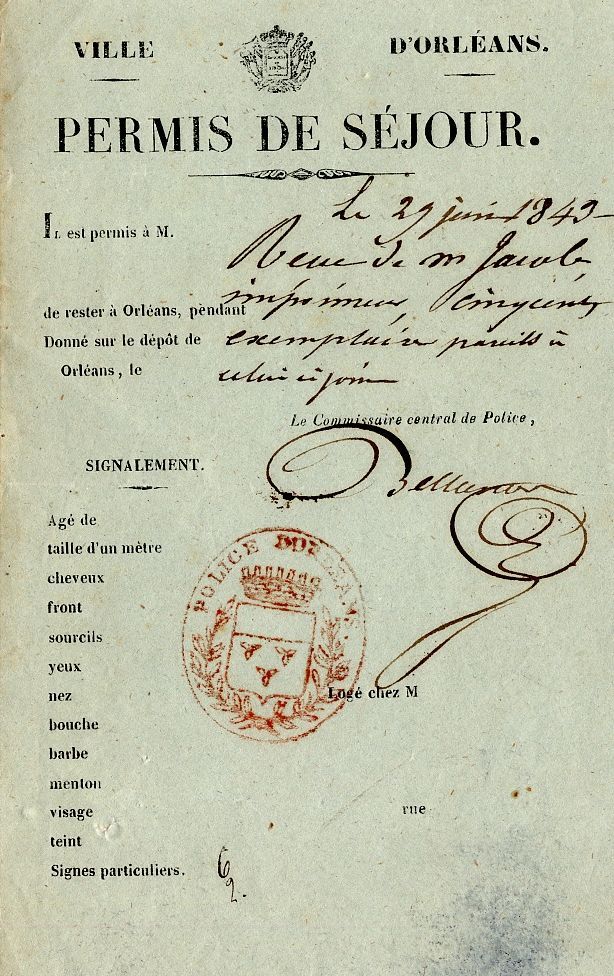 VILLE D'ORLÉANS.
PERMIS DE SÉJOUR.
Le 29 juin 1843
IL est permis à M.
Reçu de m Jacob,
imprimeur, cinq cents
de rester à Orléans, pendant
exemplaires pareils à
Donné sur le dépôt de
celui ci joint
Orléans, le
Le Commissaire central de Police,
SIGNALEMENT.
Agé de
taille d'un mètre
cheveux
front
sourcils
yeux
nez
bouche
barbe
menton
visage
teint
Signes particuliers.
POLICE D'ORLÉANS.
Logé chez M
rue
62.